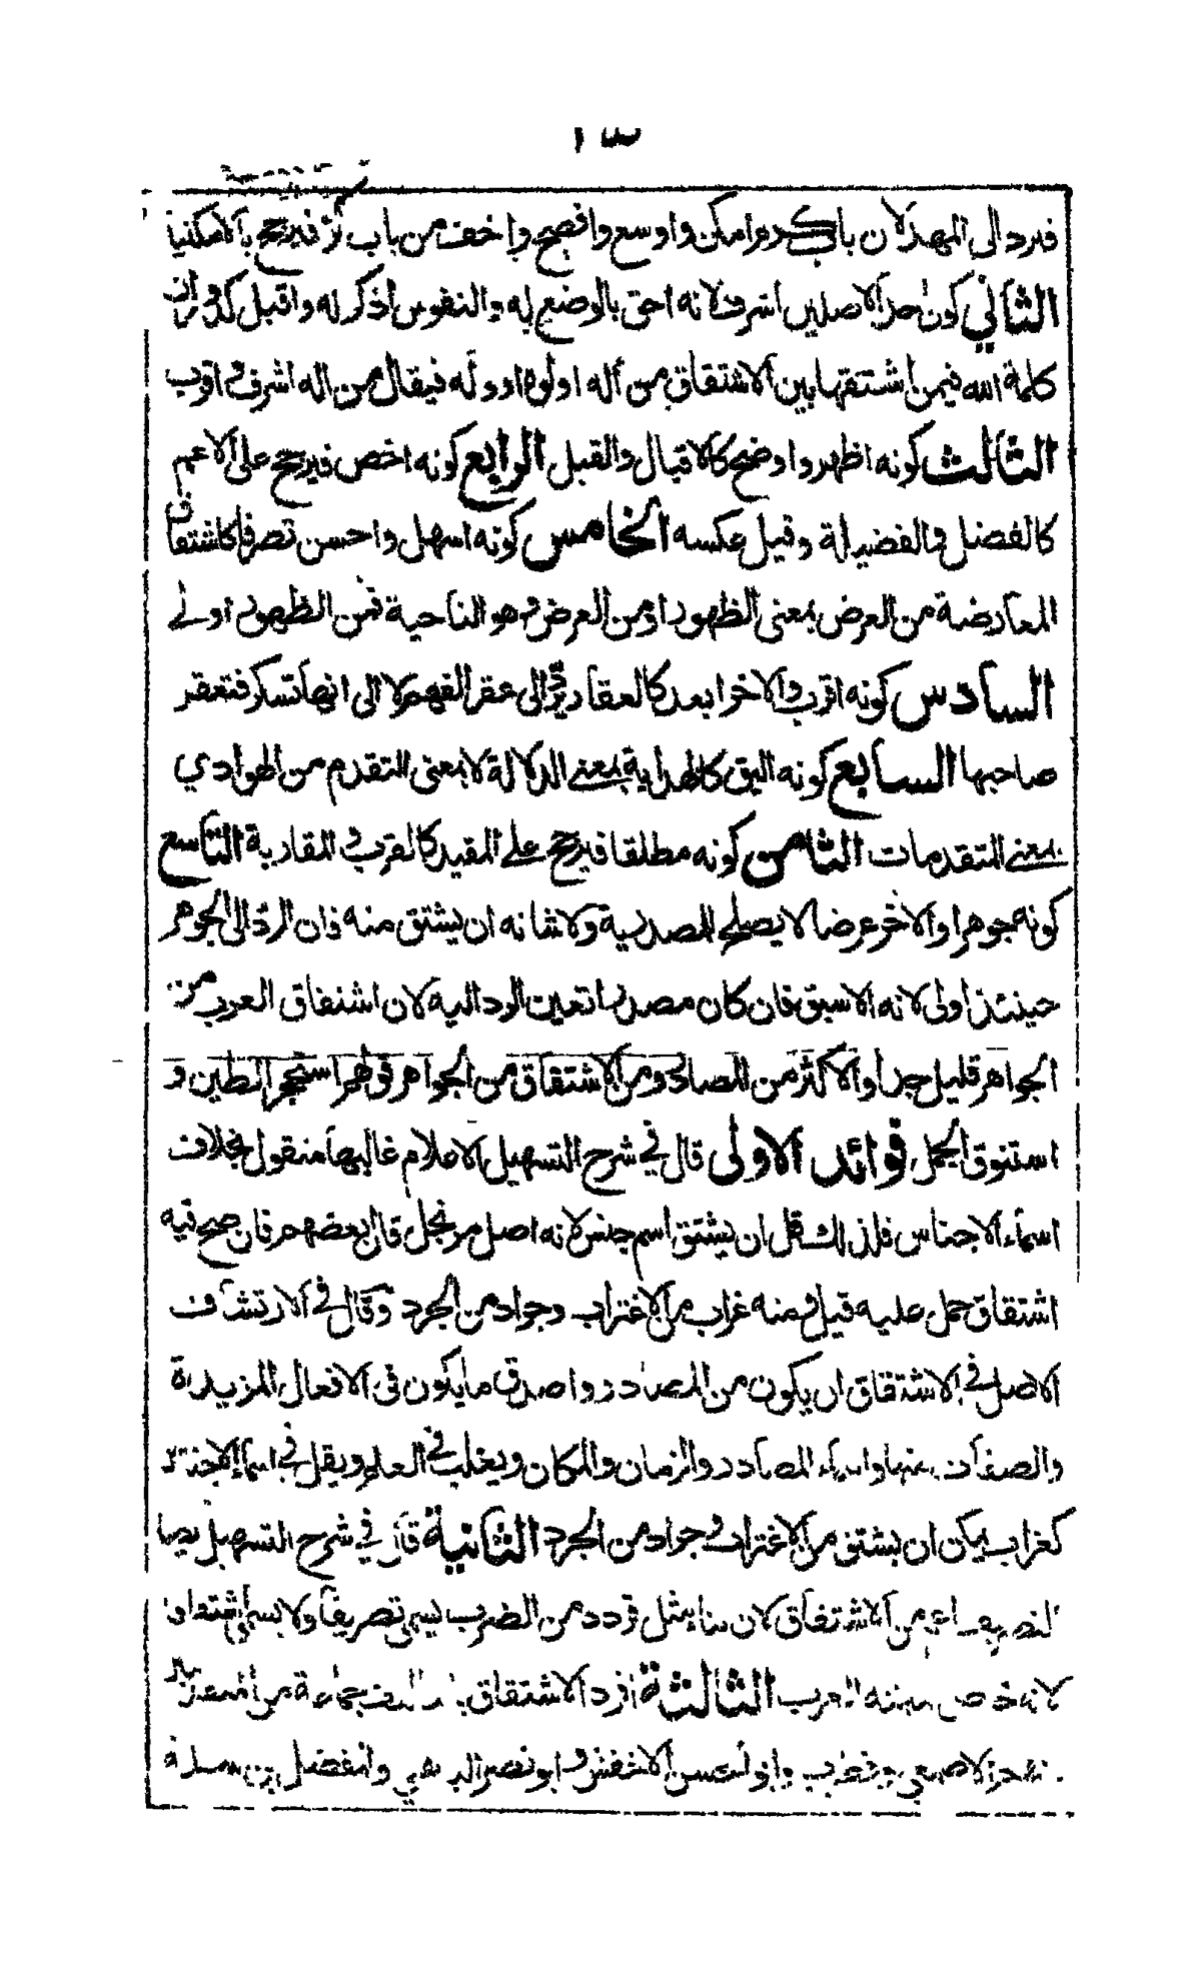 ١٣
فيرد الى المهد لان باب كرم امكن واوسع وافصح واخف من باب كر فيرجح بالامكنية
الثاني كون احد الاصلين اشرف لانه احق بالوضع له والنفوس اذكر له واقبل كدوران
كلمة الله فيمن اشتقها بين الاشتقاق من أله او لوه او وله فيقال من اله اشرف و اقرب
الثالث كونه اظهر واوضح كالاقبال والقبل الرابع كونه اخص فيرجح على الاعم
كالفضل والفضيلة وقيل عكسه الخامس كونه اسهل واحسن تصرفا كاشتقاق
المعارضة من العرض بمعنى الظهور او من العرض وهو الناحية فمن الظهور اولى
السادس كونه اقرب والاخر ابعد كالعقار يرد الى عقر الفهم لا الى انها تسكر فتعقر
صاحبها السابع كونه اليق كالهداية بمعنى الدلالة لا بمعنى التقدم من الهوادي
بمعنى المتقدمات الثامن كونه مطلقا فيرجح على المقيد كالقرب و المقاربة التاسع
كونه جوهرا والاخر عرضا لا يصلح للمصدرية ولا شانه ان يشتق منه فان الرد الى الجوهر
حينئذ اولى لانه الاسبق فان كان مصدرا تعين الرد اليه لان اشتقاق العرب من
الجواهر قليل جدا والاكثر من المصادر ومن الاشتقاق من الجواهر قولهم استحجر الطين و
استنوق الجمل فوائد الاولى قال في شرح التسهيل الاعلام غالبها منقول بخلاف
اسماء الاجناس فلذلك قل ان يشتق اسم جنس لانه اصل مرتجل قال بعضهم فان صح فيه
اشتقاق حمل عليه قيل ومنه غراب من الاغتراب وجراد من الجرد وقال في الارتشاف
الاصل في الاشتقاق ان يكون من المصادر واصدق ما يكون في الافعال المزيدة
والصفات منها واسماء المصادر والزمان والمكان ويغلب في العلم ويقل في اسماء الاجناس
كغراب يمكن ان يشتق من الاغتراب و جراد من الجرد الثانية قال في شرح التسهيل ايضا
التصريف اعم من الاشتقاق لان بناء مثل قردد من الضرب يسمى تصريفا ولا يسمى اشتقاقا
لانه خاص بما بنته العرب الثالثة افرد الاشتقاق بالتاليف جماعة من المتقدمين
الاصمعي وقطرب وابو الحسن الاخفش و ابو نصر الباهلي والمفضل بن سلمة